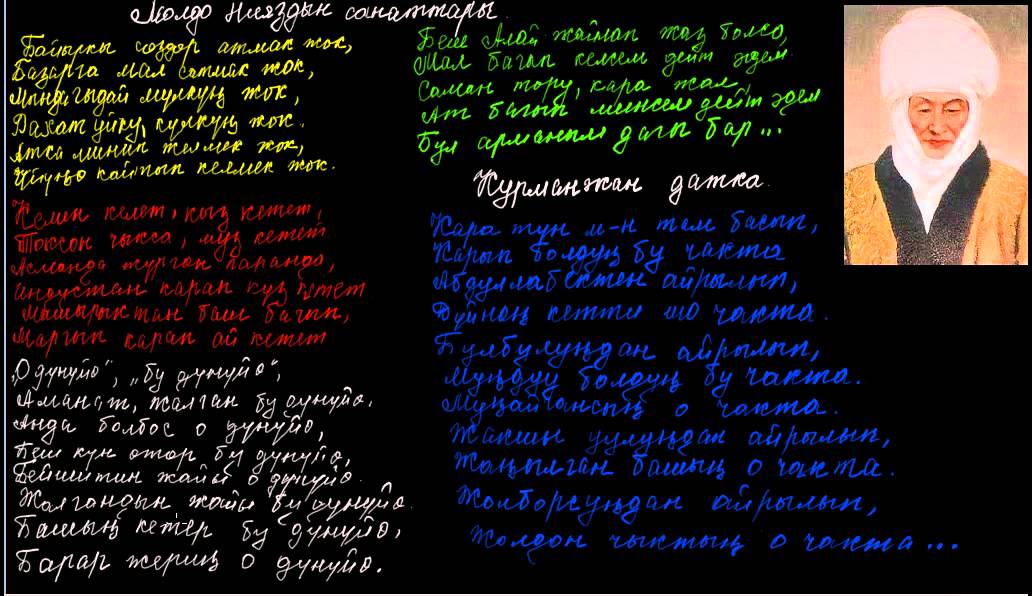 Молдо Нияздын санаттары.
Байыркы сөздөр атмак жок,
Базарга мал сатмак жок,
Мындагыдай мүлкүң жок,
Рахат уйку, күлкүң жок.
Атка минип желмек жок,
Үйүңө кайтып келмек жок.
Келин келет, кыз кетет,
Токсон чыкса, муз кетет
Асманда турган каранда,
Индустан карап куз кетет
Машырыктан баш багып,
Маргып карап ай кетет
"О дүнүйө", "бу дүнүйө",
Аманат, жалган бу дүнүйө.
Анда болбос о дүнүйө,
Беш күн өтөр бу дүнүйө,
Бейиштин жайы о дүнүйө.
Жалгандын жайы бу дүнүйө.
Башың кетер бу дүнүйө,
Барар жериң о дүнүйө.
Беш Алай жайлап жаз болсо,
Мал багып келсем дейт элем.
Саман тору, кара жал,
Ат багып минсем дейт элем
Бул арманым дагы бар...
Курманжан датка.
Кара түн м-н там басып,
Карып болдуң бу чакта
Абдуллабектен айрылып,
Дүйнөң кетти ио чакта.
Булбулуңдан айрылып,
Муңдуу болдуң бу чакта.
Муңайгансың о чакта.
Жакшы уулуңдан айрылып,
Жаңылган башың о чакта.
Жолборсуңдан айрылып,
Жолдон чыктың о чакта...